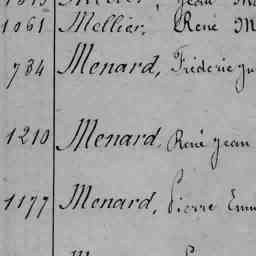 1061 Mellier, René M
734 Menard, Fréderic
1210 Menard, René Jean
1177 Menard, Pierre Emm